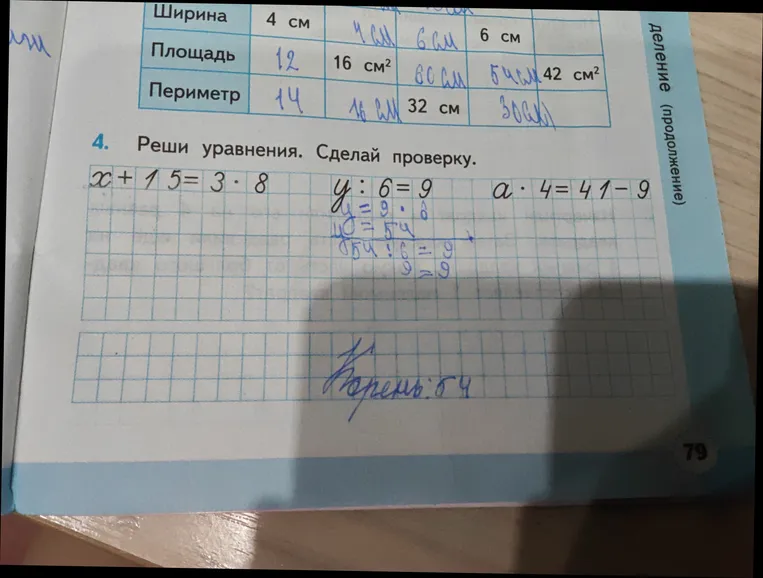 Ширина 4 см 4 см 6 см 6 см
Площадь 12 16 см² 60 см 54 см 42 см²
Периметр 14 16 см 32 см 30 см
деление (продолжение)
4. Реши уравнения. Сделай проверку.
x + 15 = 3 · 8 y : 6 = 9 a · 4 = 41 − 9
y = 9 · 6
y = 54
54 : 6 = 9
9 = 9
Корень: 54
79